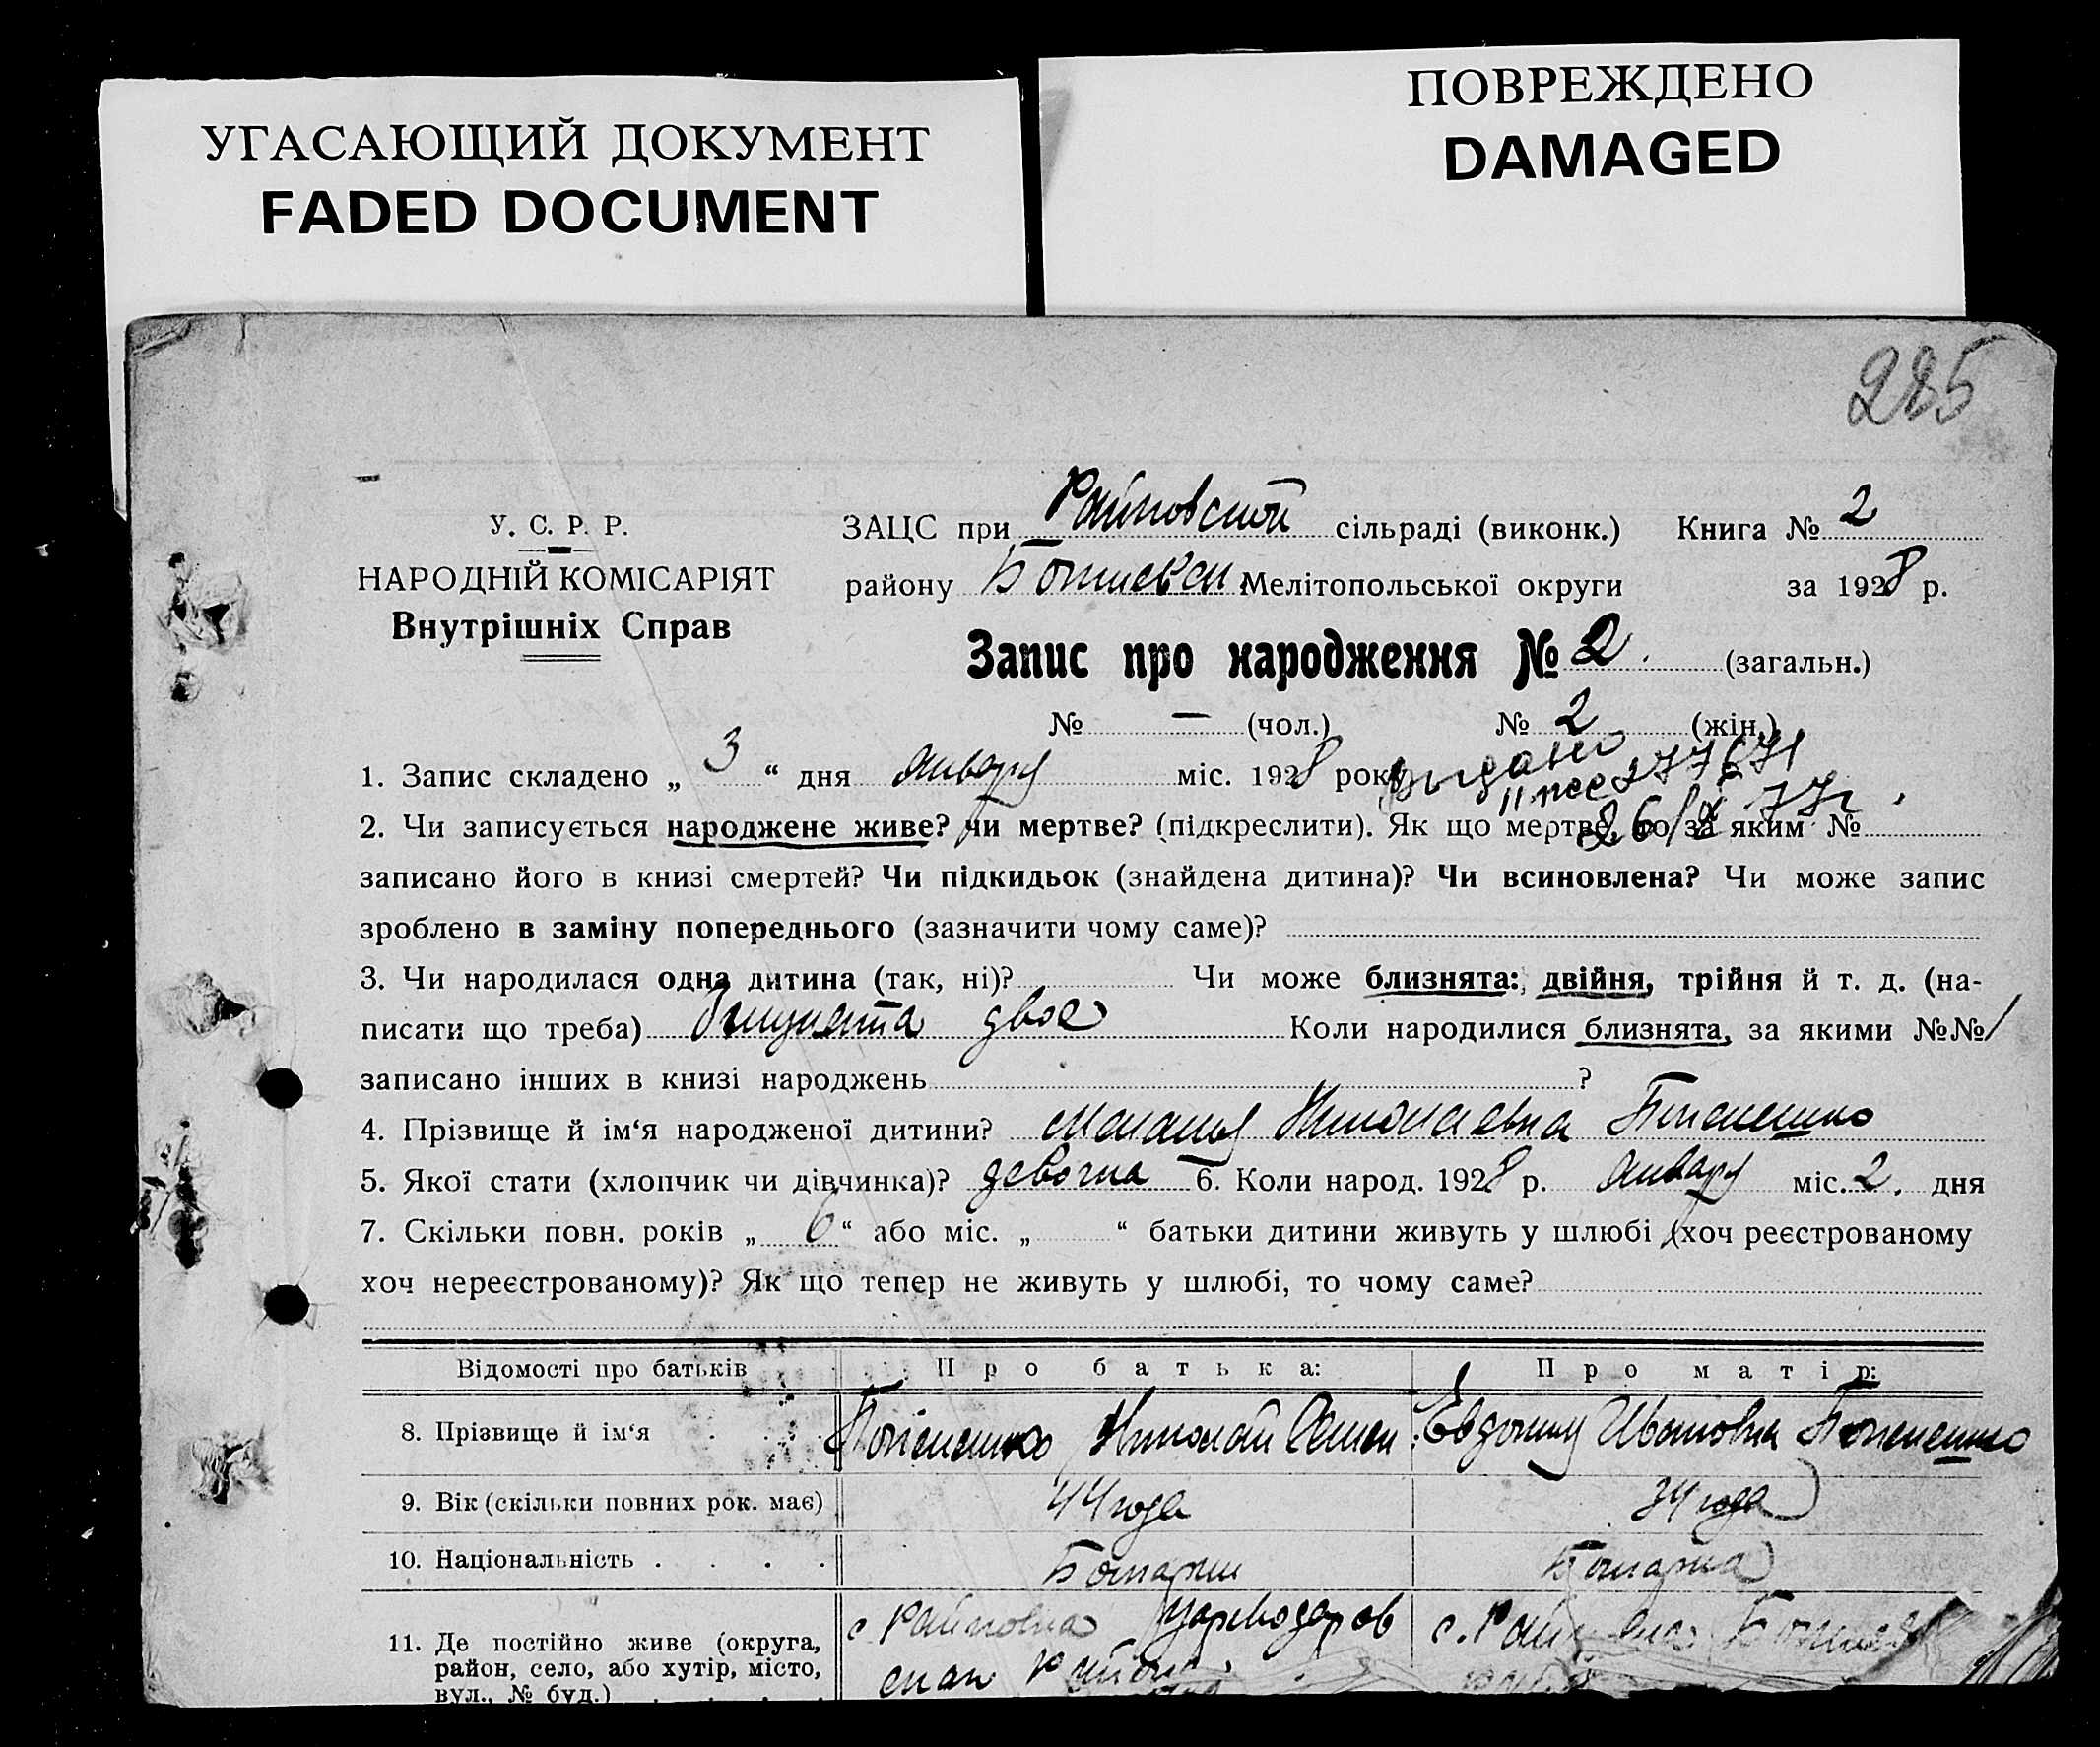 УГАСАЮЩИЙ ДОКУМЕНТ
FADED DOCUMENT
ПОВРЕЖДЕНО
DAMAGED
225
У. С. Р. Р.
НАРОДНІЙ КОМІСАРІЯТ
Внутрішніх Справ
ЗАЦС при Райновской сільраді (виконк.) Книга № 2
району Мелітопольської округи за 1928 р.
Запис про народження № 2. (загальн.)
№ — (чол.) № 2 (жін.)
1. Запис складено „ 3 “ дня января міс. 1928 року
выдано
277671
26/X 77г.
2. Чи записується народжене живе? чи мертве? (підкреслити). Як що мертве, то за яким №
записано його в книзі смертей? Чи підкидьок (знайдена дитина)? Чи всиновлена? Чи може запис
зроблено в заміну попереднього (зазначити чому саме)?
3. Чи народилася одна дитина (так, ні)? Чи може близнята: двійня, трійня й т. д. (на-
писати що треба) близнята двое Коли народилися близнята, за якими №№ 1
записано інших в книзі народжень ?
4. Прізвище й ім‘я народженої дитини? Николаевна
5. Якої стати (хлопчик чи дівчинка)? девочка 6. Коли народ. 1928 р. января міс. 2. дня
7. Скільки повн. років „ 6 “ або міс. „ “ батьки дитини живуть у шлюбі (хоч реєстрованому
хоч нереєстрованому)? Як що тепер не живуть у шлюбі, то чому саме?
Відомості про батьків Про батька: Про матір:
8. Прізвище й ім‘я Николай Семен. Ивановна
9. Вік (скільки повних рок. має) 44 года 34 года
10. Національність Болгарин Болгарка
11. Де постійно живе (округа, с. Райновка с.
район, село, або хутір, місто, района
вул., № буд.)